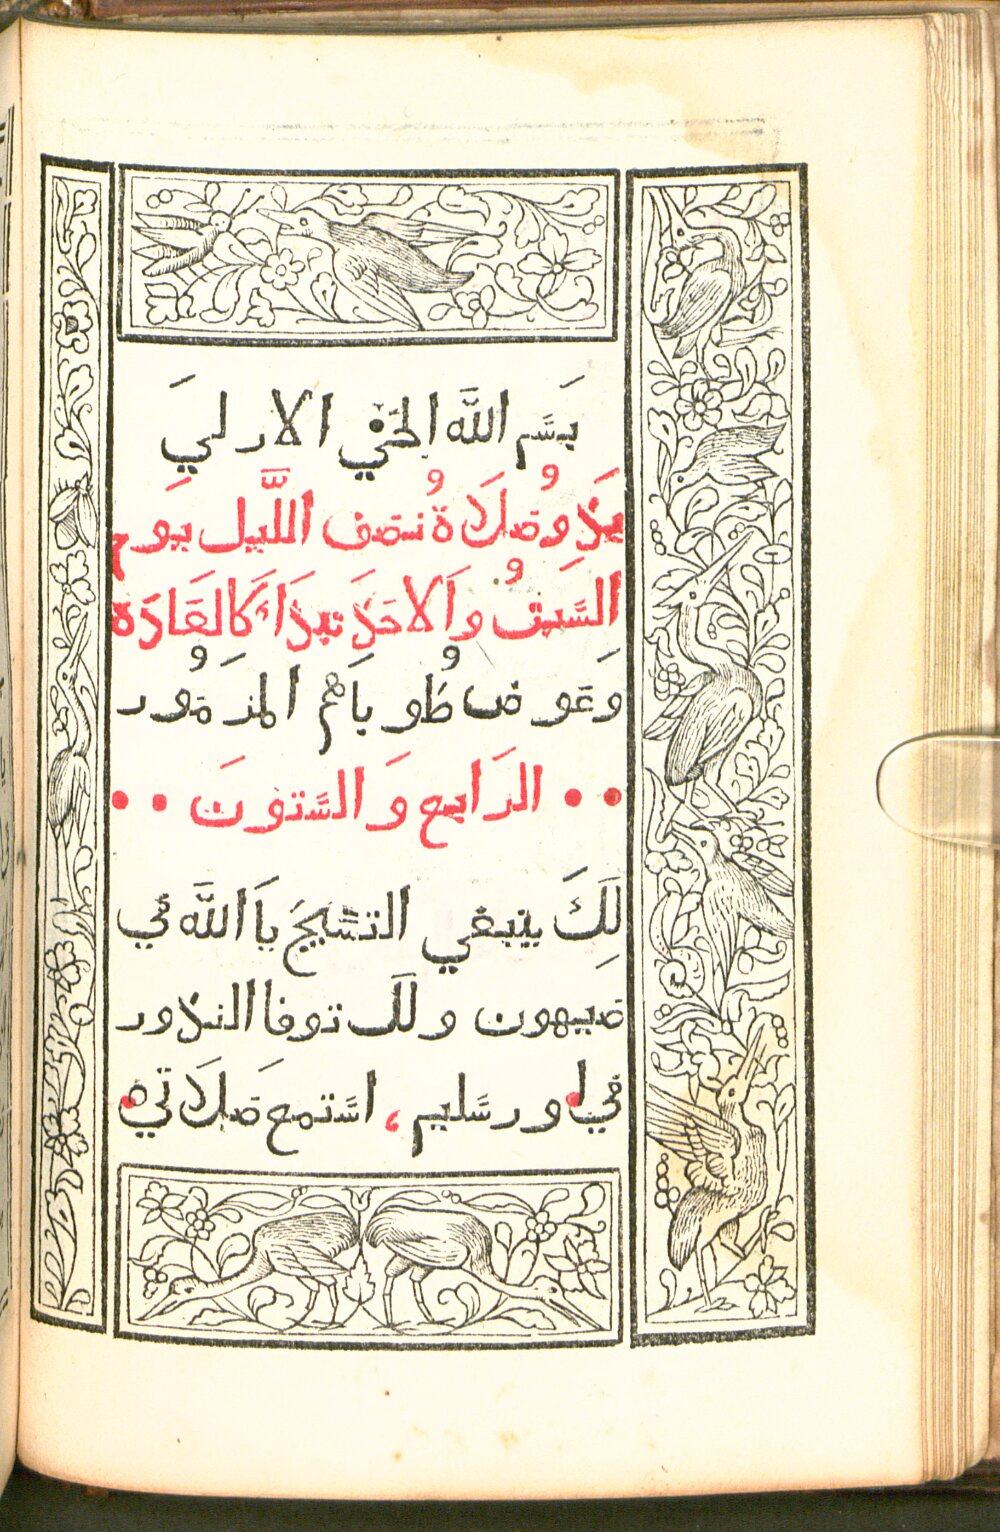 بسم الله الحي الازلي
بدو صلاة نصف الليل يوم
السبت والاحد تبدا كالعادة
وعوض طوباهم المزمور
الرابع والستون
لك ينبغي التسبيح يا الله في
صيهون ولك توفا الندور
في اورسليم، استمع صلاتي